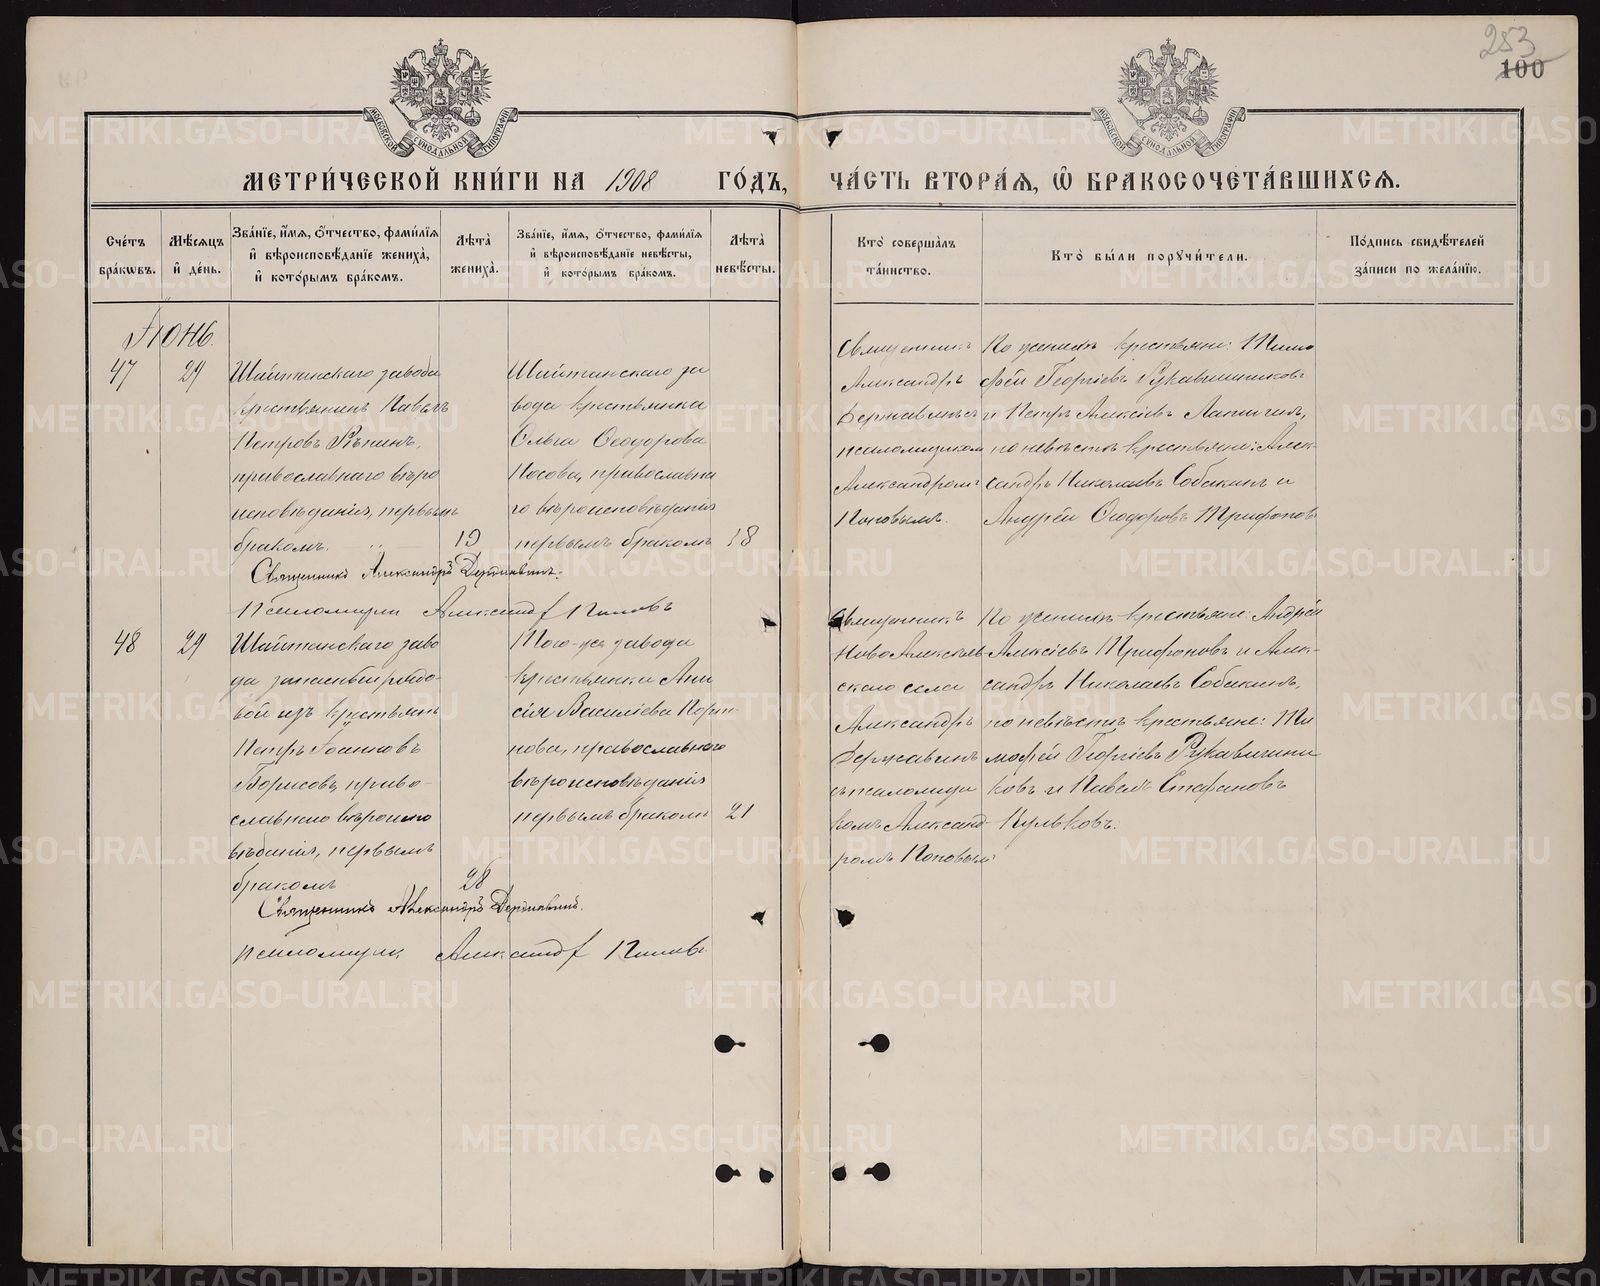 253
100
МЕТРИ́ЧЕСКОЙ КНИ́ГИ НА 1908 ГО́ДЪ, ЧА́СТЬ ВТОРА́Я, Ѡ БРАКОСОЧЕТА́ВШИХСЯ.
Сче́тъ бра́кѡвъ.
Мѣ́сяцъ и҆ де́нь.
Зва́нїе, и҆́мя, ѻ҆́тчество, фамилїя и҆ вѣроисповѣ́данїе жениха̀, и҆ кото́рымъ бра́комъ.
Лѣ́та жениха̀.
Зва́нїе, и҆́мя, ѻ҆́тчество, фамилїя и҆ вѣроисповѣ́данїе невѣ́сты, и҆ кото́рымъ бра́комъ.
Лѣ́та невѣ́сты.
Кто̀ соверша́лъ та́инство.
Кто̀ бы́ли поручи́тели.
По́дпись свидѣ́телей за́писи по жела́нїю.
Іюнь.
47
29
Шайтанскаго завода
крестьянинъ Павелъ
Петровъ Рѣпинъ,
православнаго вѣро
исповѣданія, первымъ
бракомъ.
19
Шайтанскаго за
вода крестьянка
Ольга Ѳеодорова
Носова, православна
го вѣроисповѣданія
первымъ бракомъ
18
Священникъ
Александръ
Державинъ съ
псаломщикомъ
Александромъ
Поповымъ.
По женихѣ крестьяне: Тимо
фей Георгіевъ Рукавишниковъ
и Петръ Алексіевъ Лапшинъ,
по невѣстѣ крестьяне: Алек-
сандръ Николаевъ Собакинъ и
Андрей Ѳеодоровъ Трифоновъ
Священникъ Александръ Державинъ.
Псаломщикъ Александръ Поповъ
48
29
Шайтанскаго заво
да запасный рядо-
вой изъ крестьянъ
Петръ Іоанновъ
Борисовъ, право-
славнаго вѣроиспо
вѣданія, первымъ
бракомъ
28
Того-же завода
крестьянка Ани
сія Василіева Порт-
нова, православнаго
вѣроисповѣданія
первымъ бракомъ
21
Священникъ
Ново Алексѣев-
скаго села
Александръ
Державинъ
съ псаломщи
комъ Александ-
ромъ Поповымъ
По женихѣ крестьяне: Андрей
Алексіевъ Трифоновъ и Алек-
сандръ Николаевъ Собакинъ,
по невѣстѣ крестьяне: Ти
мофей Георгіевъ Рукавишни
ковъ и Павелъ Стефановъ
Кульковъ.
Священникъ Александръ Державинъ.
Псаломщикъ Александръ Поповъ
METRIKI.GASO-URAL.RU